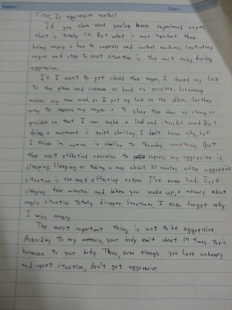 Time, Is aggression useful?
If you claim that you've never experienced anger,
that is totally lie. But what is more important than
being angry is how to controls and control madness, controlling
anger and stop to next situation is the most thing during
aggression.
If I want to get chaos the anger, I shared my face
to the place and scream as loud as possible, Screaming
makes my mad and, so I put my face on the pillow. Another
way to express my anger is to close the door as strong as
possible so that I can make a loud and shouted sound. But
doing a movement is quiet shrilling. I don't know why but
I think its motion is similar to throwing something. But
the most effective reaction to express my aggression is
sleeping. Sleeping or taking a nap about 20 minutes while aggressive
situation is the most effecting action I've ever had. Just
sleeping few minutes and when you wake up, a memory about
angry situation totally disappear. Sometimes, I even forget why
I was angry.
The most important thing is not to be aggressive
According to my memory, your body emit about 15 times toxic
hormone to your body. Thus, even though you have unhappy
and upset situation, don't get aggressive